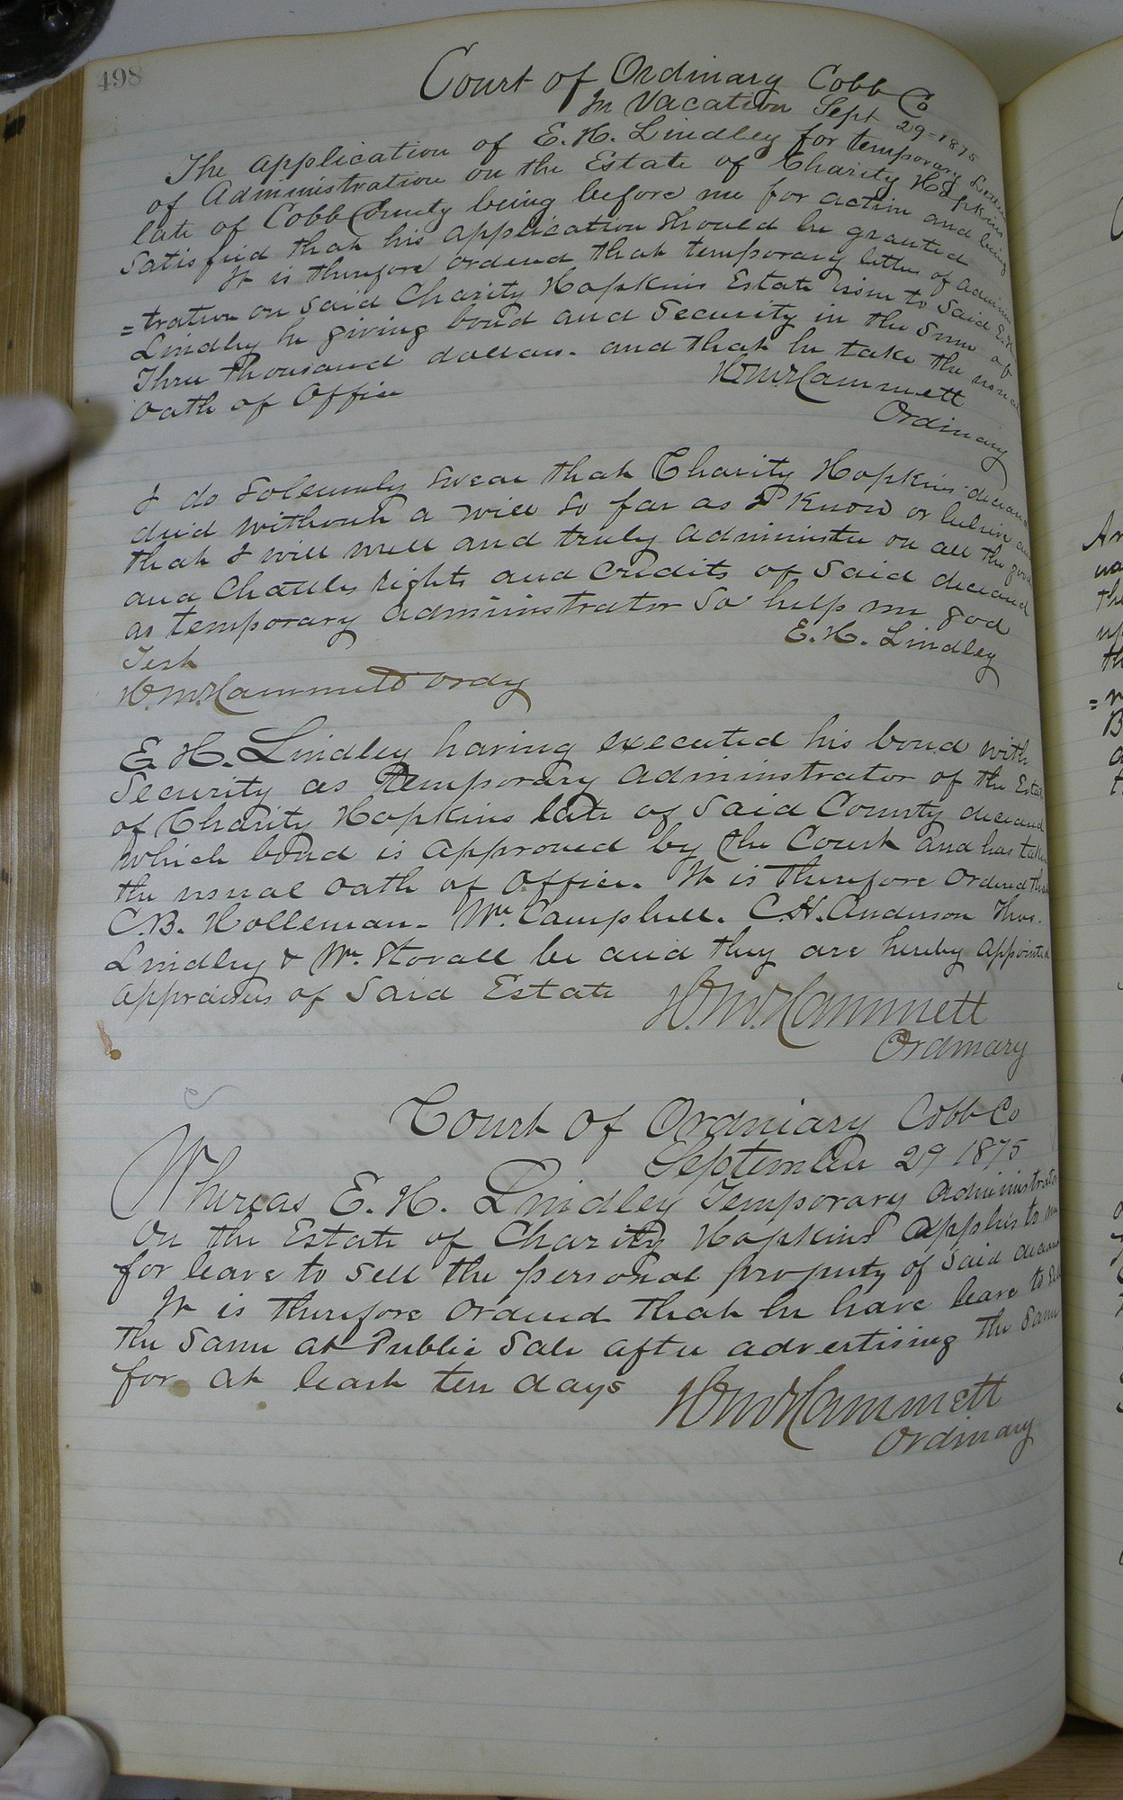 498
Court of Ordinary Cobb Co
In Vacation Sept 29=1875
The application of E. H. Lindley for temporary Letters
of Administration on the Estate of Charity Hopkins
late of Cobb County being before me for action and being
Satisfied that his application Should be granted
It is therefore ordered that temporary letters of Adminis
=tration on Said Charity Hopkins Estate issue to Said E.H.
Lindley he giving bond and Security in the Sum of
Three thousand dollars. and that he take the usual
Oath of Office
Wm R Cammett
Ordinary
I do Solemnly Swear that Charity Hopkins deceased
died without a will So far as I Know or believe and
that I will well and truly administer on all the goods
and Chattles rights and Credits of Said deceased
as temporary administrator So help me god
E. H. Lindley
Test
Ordy
E. H. Lindley having executed his bond with
Security as temporary administrator of the Estate
of Charity Hopkins late of Said County deceased
which bond is approved by the Court and has taken
the usual oath of Office. It is therefore Ordered that
C.B. Holleman. Wm. Campbell. C.H. Anderson Thos.
Lindley & Wm. Stovall be and they are hereby appointed
appraisers of Said Estate
Ordinary
Court of Ordinary Cobb Co
September 29 1875
Whereas E. H. Lindley Temporary administrator
on the Estate of Charity Hopkins applies to me
for leave to Sell the personal property of Said deceased
It is therefore Ordered that he have leave to Sell
the Same at Public Sale after advertising the Same
for at least ten days
Ordinary